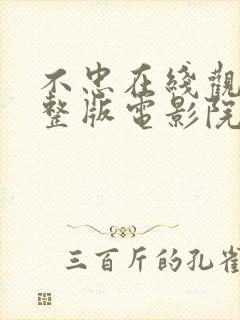 不忠在綫觀
整版電影院
三百斤的孔雀